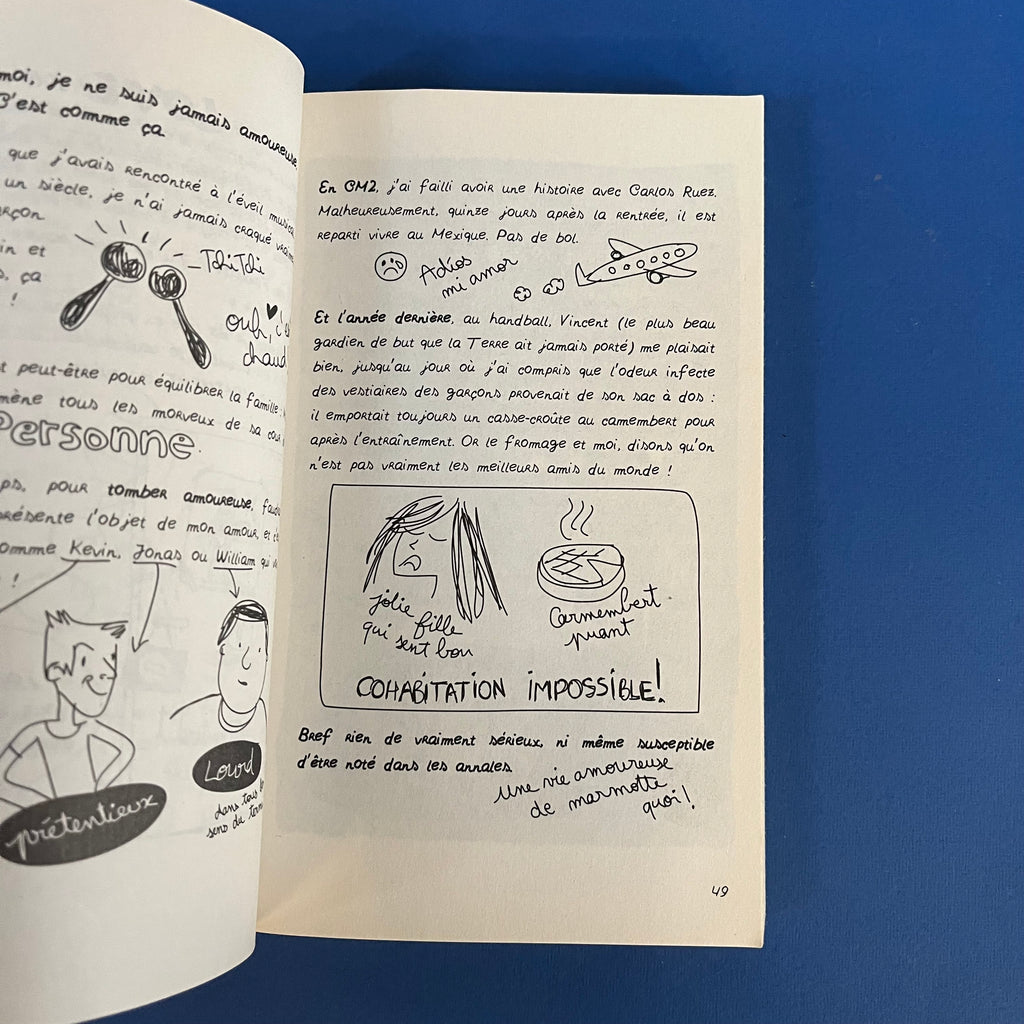 moi, je ne suis jamais amoureuse.
C'est comme ça
que j'avais rencontré à l'éveil
un siècle, je n'ai jamais craqué
in et
, ça
!
Tchi Tchi
ouh,
chaud
peut-être pour équilibrer la famille :
mène tous les morveux de sa
Personne.
pour tomber amoureuse,
présente l'objet de mon amour, et
comme Kevin, Jonas ou William qui
!
prétentieux
Lourd
dans tous les
sens du
En CM2, j'ai failli avoir une histoire avec Carlos Ruez.
Malheureusement, quinze jours après la rentrée, il est
reparti vivre au Mexique. Pas de bol.
Adios
mi amor
Et l'année dernière, au handball, Vincent (le plus beau
gardien de but que la Terre ait jamais porté) me plaisait
bien, jusqu'au jour où j'ai compris que l'odeur infecte
des vestiaires des garçons provenait de son sac à dos :
il emportait toujours un casse-croûte au camembert pour
après l'entraînement. Or le fromage et moi, disons qu'on
n'est pas vraiment les meilleurs amis du monde !
jolie fille
qui sent bon
Carmembert
puant
COHABITATION IMPOSSIBLE!
Bref rien de vraiment sérieux, ni même susceptible
d'être noté dans les annales.
Une vie amoureuse
de marmotte
quoi!
49